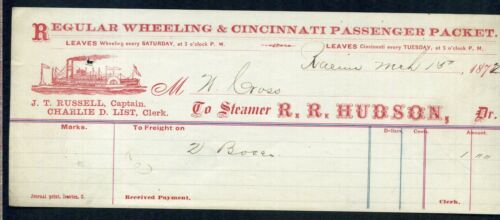 REGULAR WHEELING & CINCINNATI PASSENGER PACKET.
LEAVES Wheeling every SATURDAY, at 3 o'clock P. M.
LEAVES Cincinnati every TUESDAY, at 5 o'clock P. M.
Racine Mch 15 1872
M W Cross
J. T. RUSSELL, Captain.
CHARLIE D. LIST, Clerk.
To STEAMER R. R. HUDSON, Dr.
Marks.
To Freight on
Dollars.
Cents.
Amount.
2 Boxes
1 00
Journal print, Ironton, O.
Received Payment,
Clerk.